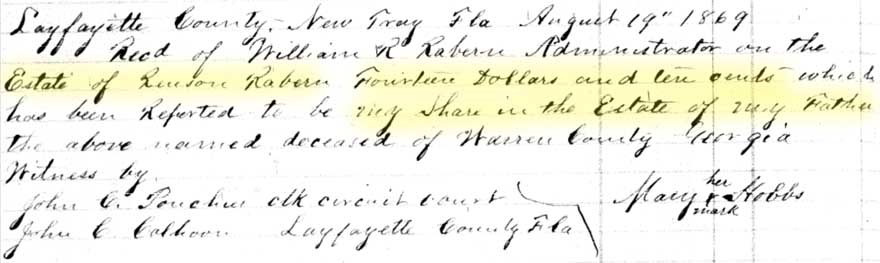 Layfayette County, New Troy Fla August 19" 1869
Recd of William R Rabern Administrator on the
Estate of Renson Rabern Fourteen Dollars and ten cents which
has been Reported to be my share in the Estate of my Father
the above named deceased of Warren County Georgia
Witness by
John C. Ponchier clk circuit court
John C Calhoon Layfayette County Fla
Mary her x mark Hobbs